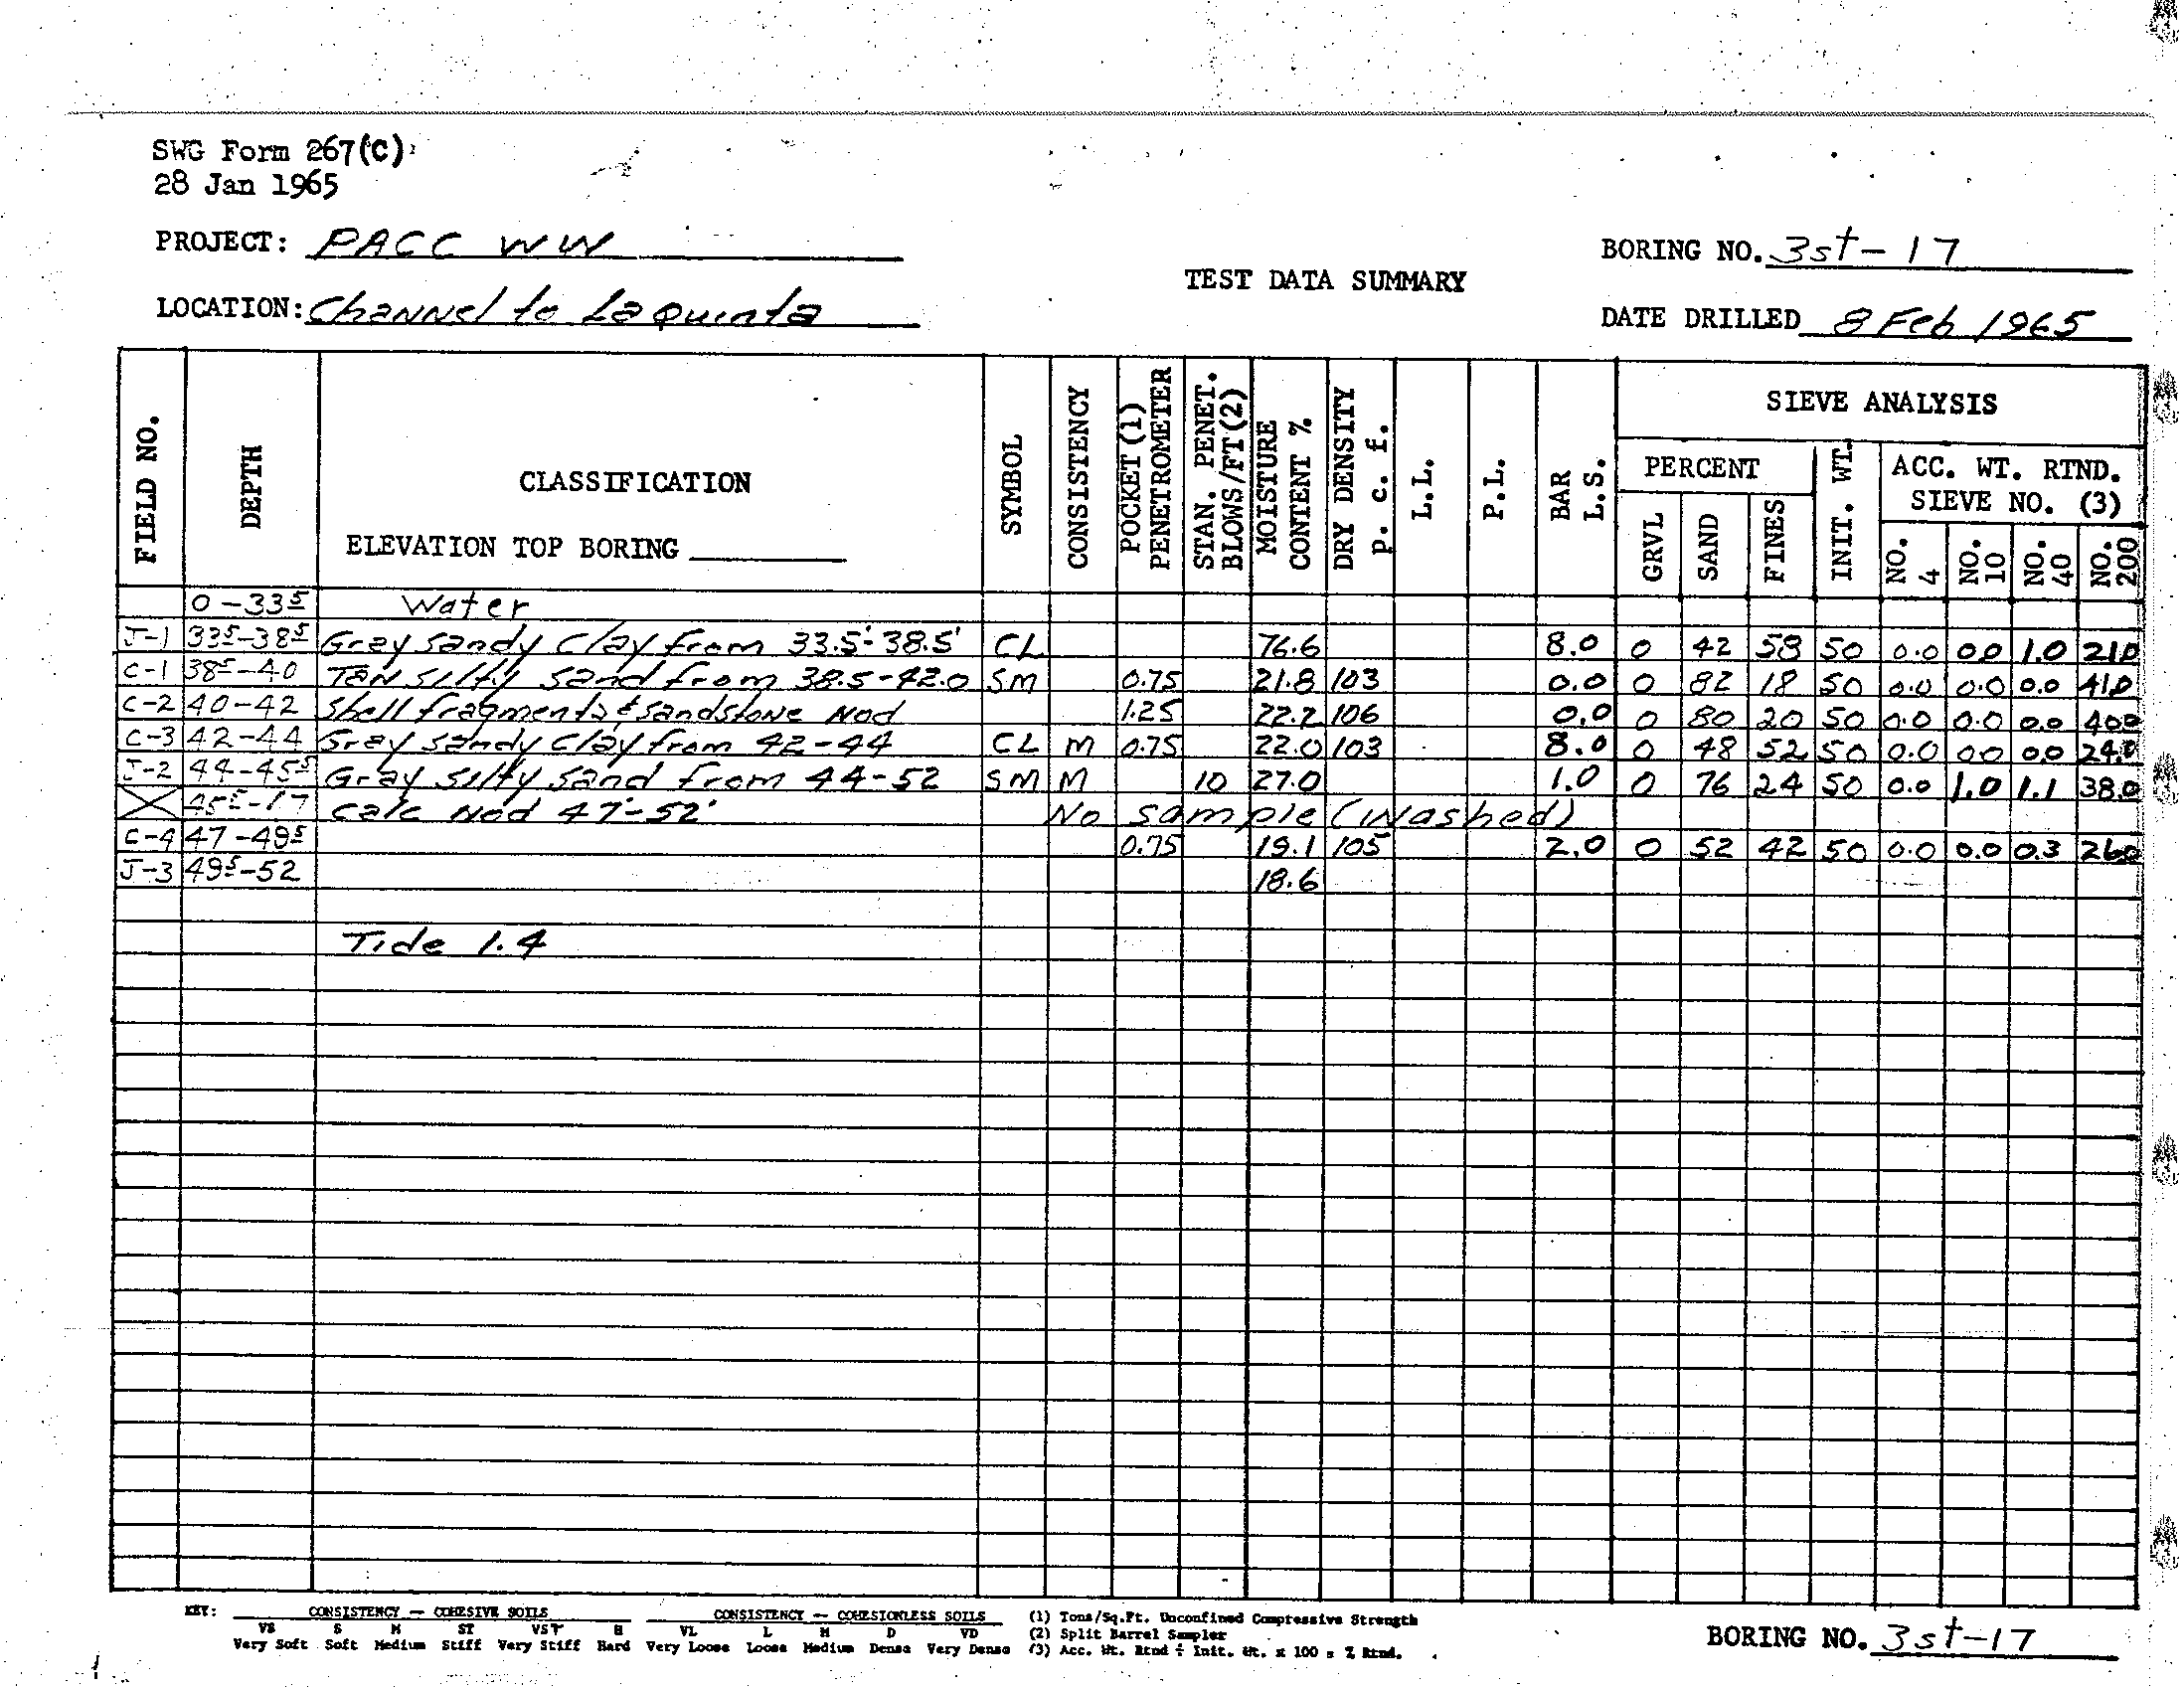 SWG Form 267(C)
28 Jan 1965
PROJECT: PACC WW
BORING NO. 3st-17
TEST DATA SUMMARY
LOCATION: Channel to La Quinta
DATE DRILLED 8 Feb 1965
FIELD NO.
DEPTH
CLASSIFICATION
ELEVATION TOP BORING
SYMBOL
CONSISTENCY
POCKET (1) PENETROMETER
STAN. PENET. BLOWS/FT (2)
MOISTURE CONTENT %
DRY DENSITY p. c. f.
L.L.
P.L.
BAR L.S.
SIEVE ANALYSIS
PERCENT
GRVL
SAND
FINES
INIT. WT.
ACC. WT. RTND.
SIEVE NO. (3)
NO. 4
NO. 10
NO. 40
NO. 200
0-33⁵ Water
J-1 33⁵-38⁵ Gray sandy clay from 33.5'-38.5' CL 76.6 8.0 0 42 58 50 0.0 0.0 1.0 21.0
C-1 38⁵-40 Tan silty sand from 38.5-42.0 SM 0.75 21.8 103 0.0 0 82 18 50 0.0 0.0 0.0 41.0
C-2 40-42 Shell fragments & sandstone Nod 1.25 22.2 106 0.0 0 80 20 50 0.0 0.0 0.0 40.0
C-3 42-44 Gray sandy clay from 42-44 CL M 0.75 22.0 103 8.0 0 48 52 50 0.0 0.0 0.0 24.0
J-2 44-45⁵ Gray silty sand from 44-52 SM M 10 27.0 1.0 0 76 24 50 0.0 1.0 1.1 38.0
45⁵-47 Calc Nod 47'-52' No sample (Washed)
C-4 47-49⁵ 0.75 19.1 105 2.0 0 52 42 50 0.0 0.0 0.3 26.0
J-3 49⁵-52 18.6
Tide 1.4
KEY: CONSISTENCY - COHESIVE SOILS CONSISTENCY -- COHESIONLESS SOILS (1) Tons/Sq.Ft. Unconfined Compressive Strength
VS S M ST VST H VL L M D VD (2) Split Barrel Sampler
Very Soft Soft Medium Stiff Very Stiff Hard Very Loose Loose Medium Dense Very Dense (3) Acc. Wt. Rtnd ÷ Init. Wt. x 100 = % Rtnd.
BORING NO. 3st-17